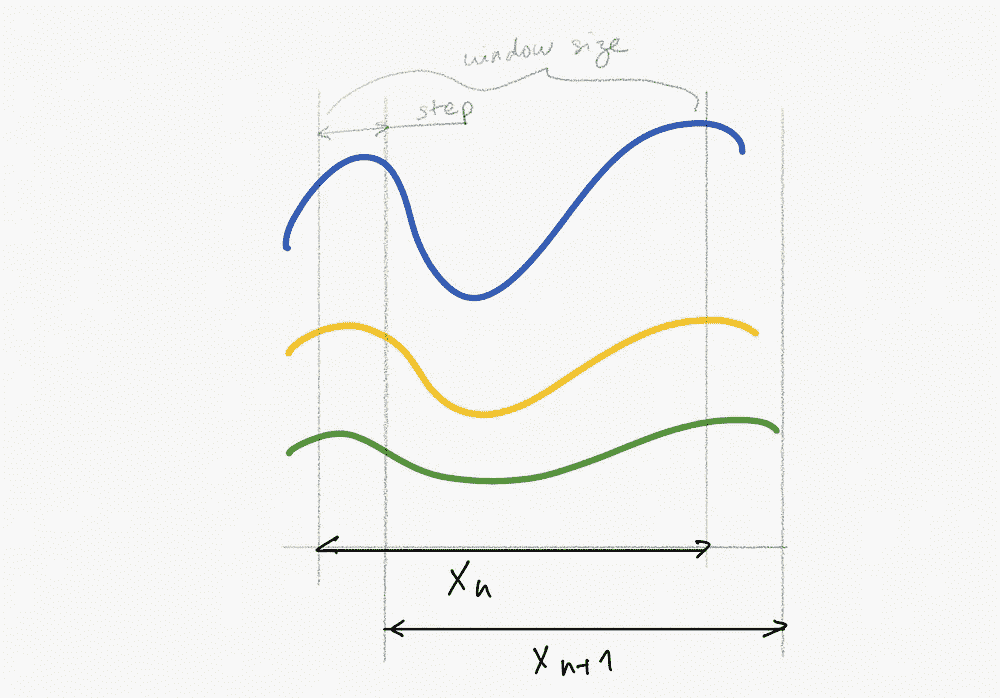 window size
step
Xn
Xn+1